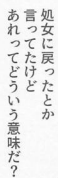 処女に戻ったとか
言ってたけど
あれってどういう意味だ?